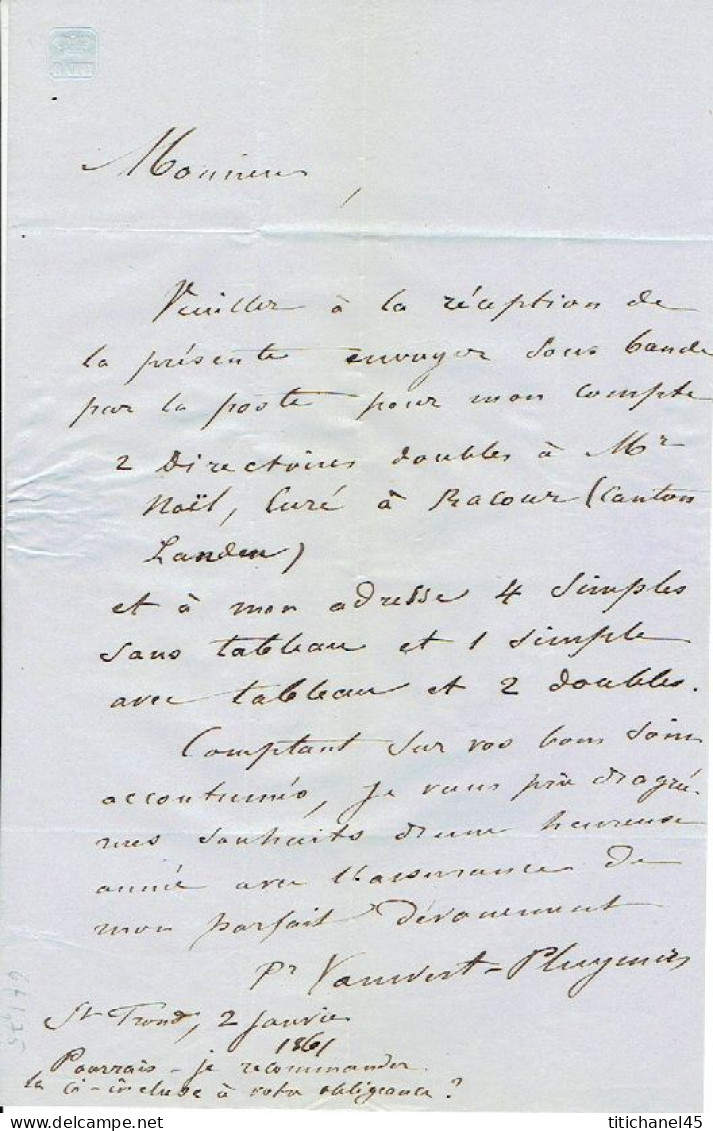 Monsieur,
Veuillez à la réception de
la présente envoyer sous bande
par la poste pour mon compte
2 Directoires doubles à Mr
Noël, Curé à Racour (Canton
Landen)
et à mon adresse 4 simples
sans tableau et 1 simple
avec tableau et 2 doubles.
Comptant sur vos bons soins
accoutumés, je vous prie d'agréer
mes souhaits d'une heureuse
année avec l'assurance de
mon parfait dévouement
Pr Vanwest-Pluymers
St Trond, 2 Janvier
1861
Pourrais-je recommander
la ci-incluse à votre obligeance ?
BATH
titichanel45